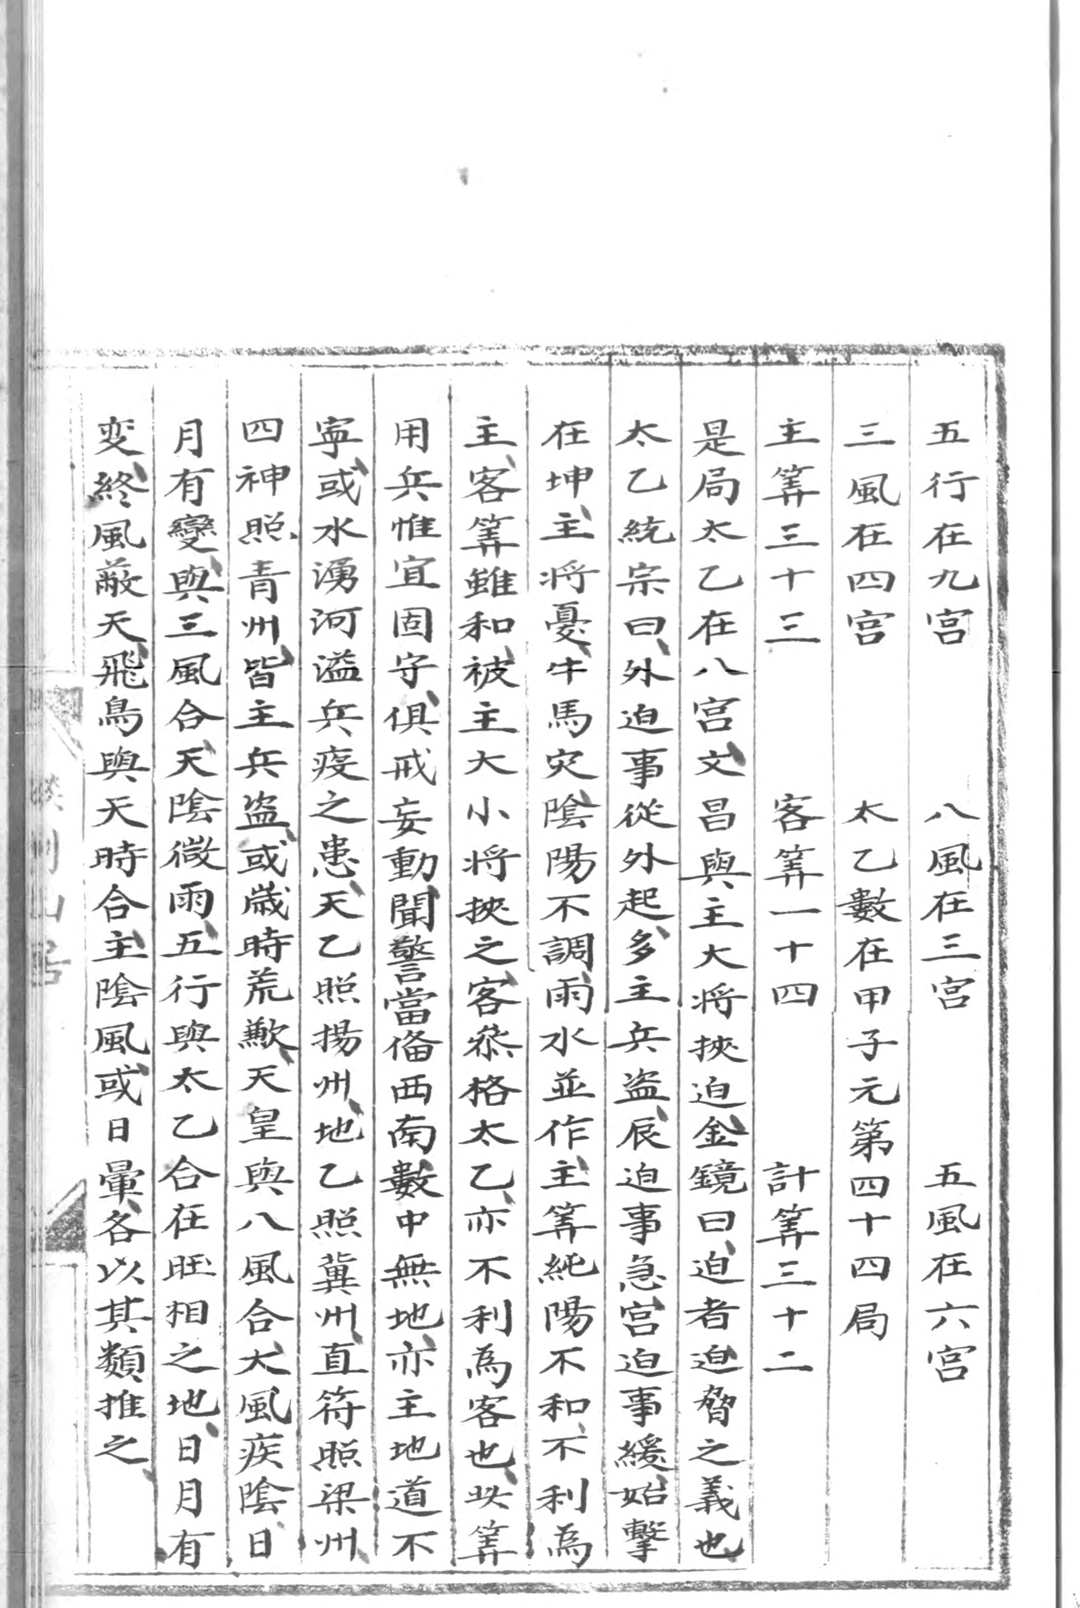 五行在九宫　八風在三宫　五風在六宫
三風在四宫　太乙數在甲子元第四十四局
主筭三十三　客筭一十四　計筭三十二
是局太乙在八宫文昌與主大将挾迫金鏡曰迫者迫脅之義也
太乙統宗曰外迫事從外起多主兵盗辰迫事急宫迫事緩始擊
在坤主将憂牛馬灾陰陽不調雨水並作主筭純陽不和不利為
主客筭雖和被主大小将挾之客叅格太乙亦不利為客也此筭
用兵惟宜固守俱戒妄動聞警當俻西南數中無地亦主地道不
寧或水湧河溢兵疫之患天乙照揚州地乙照冀州直符照梁州
四神照青州皆主兵盗或歳時荒歉天皇與八風合大風疾陰日
月有變與三風合天陰微雨五行與太乙合在旺相之地日月有
変終風蔽天飛鳥與天時合主陰風或日暈各以其類推之